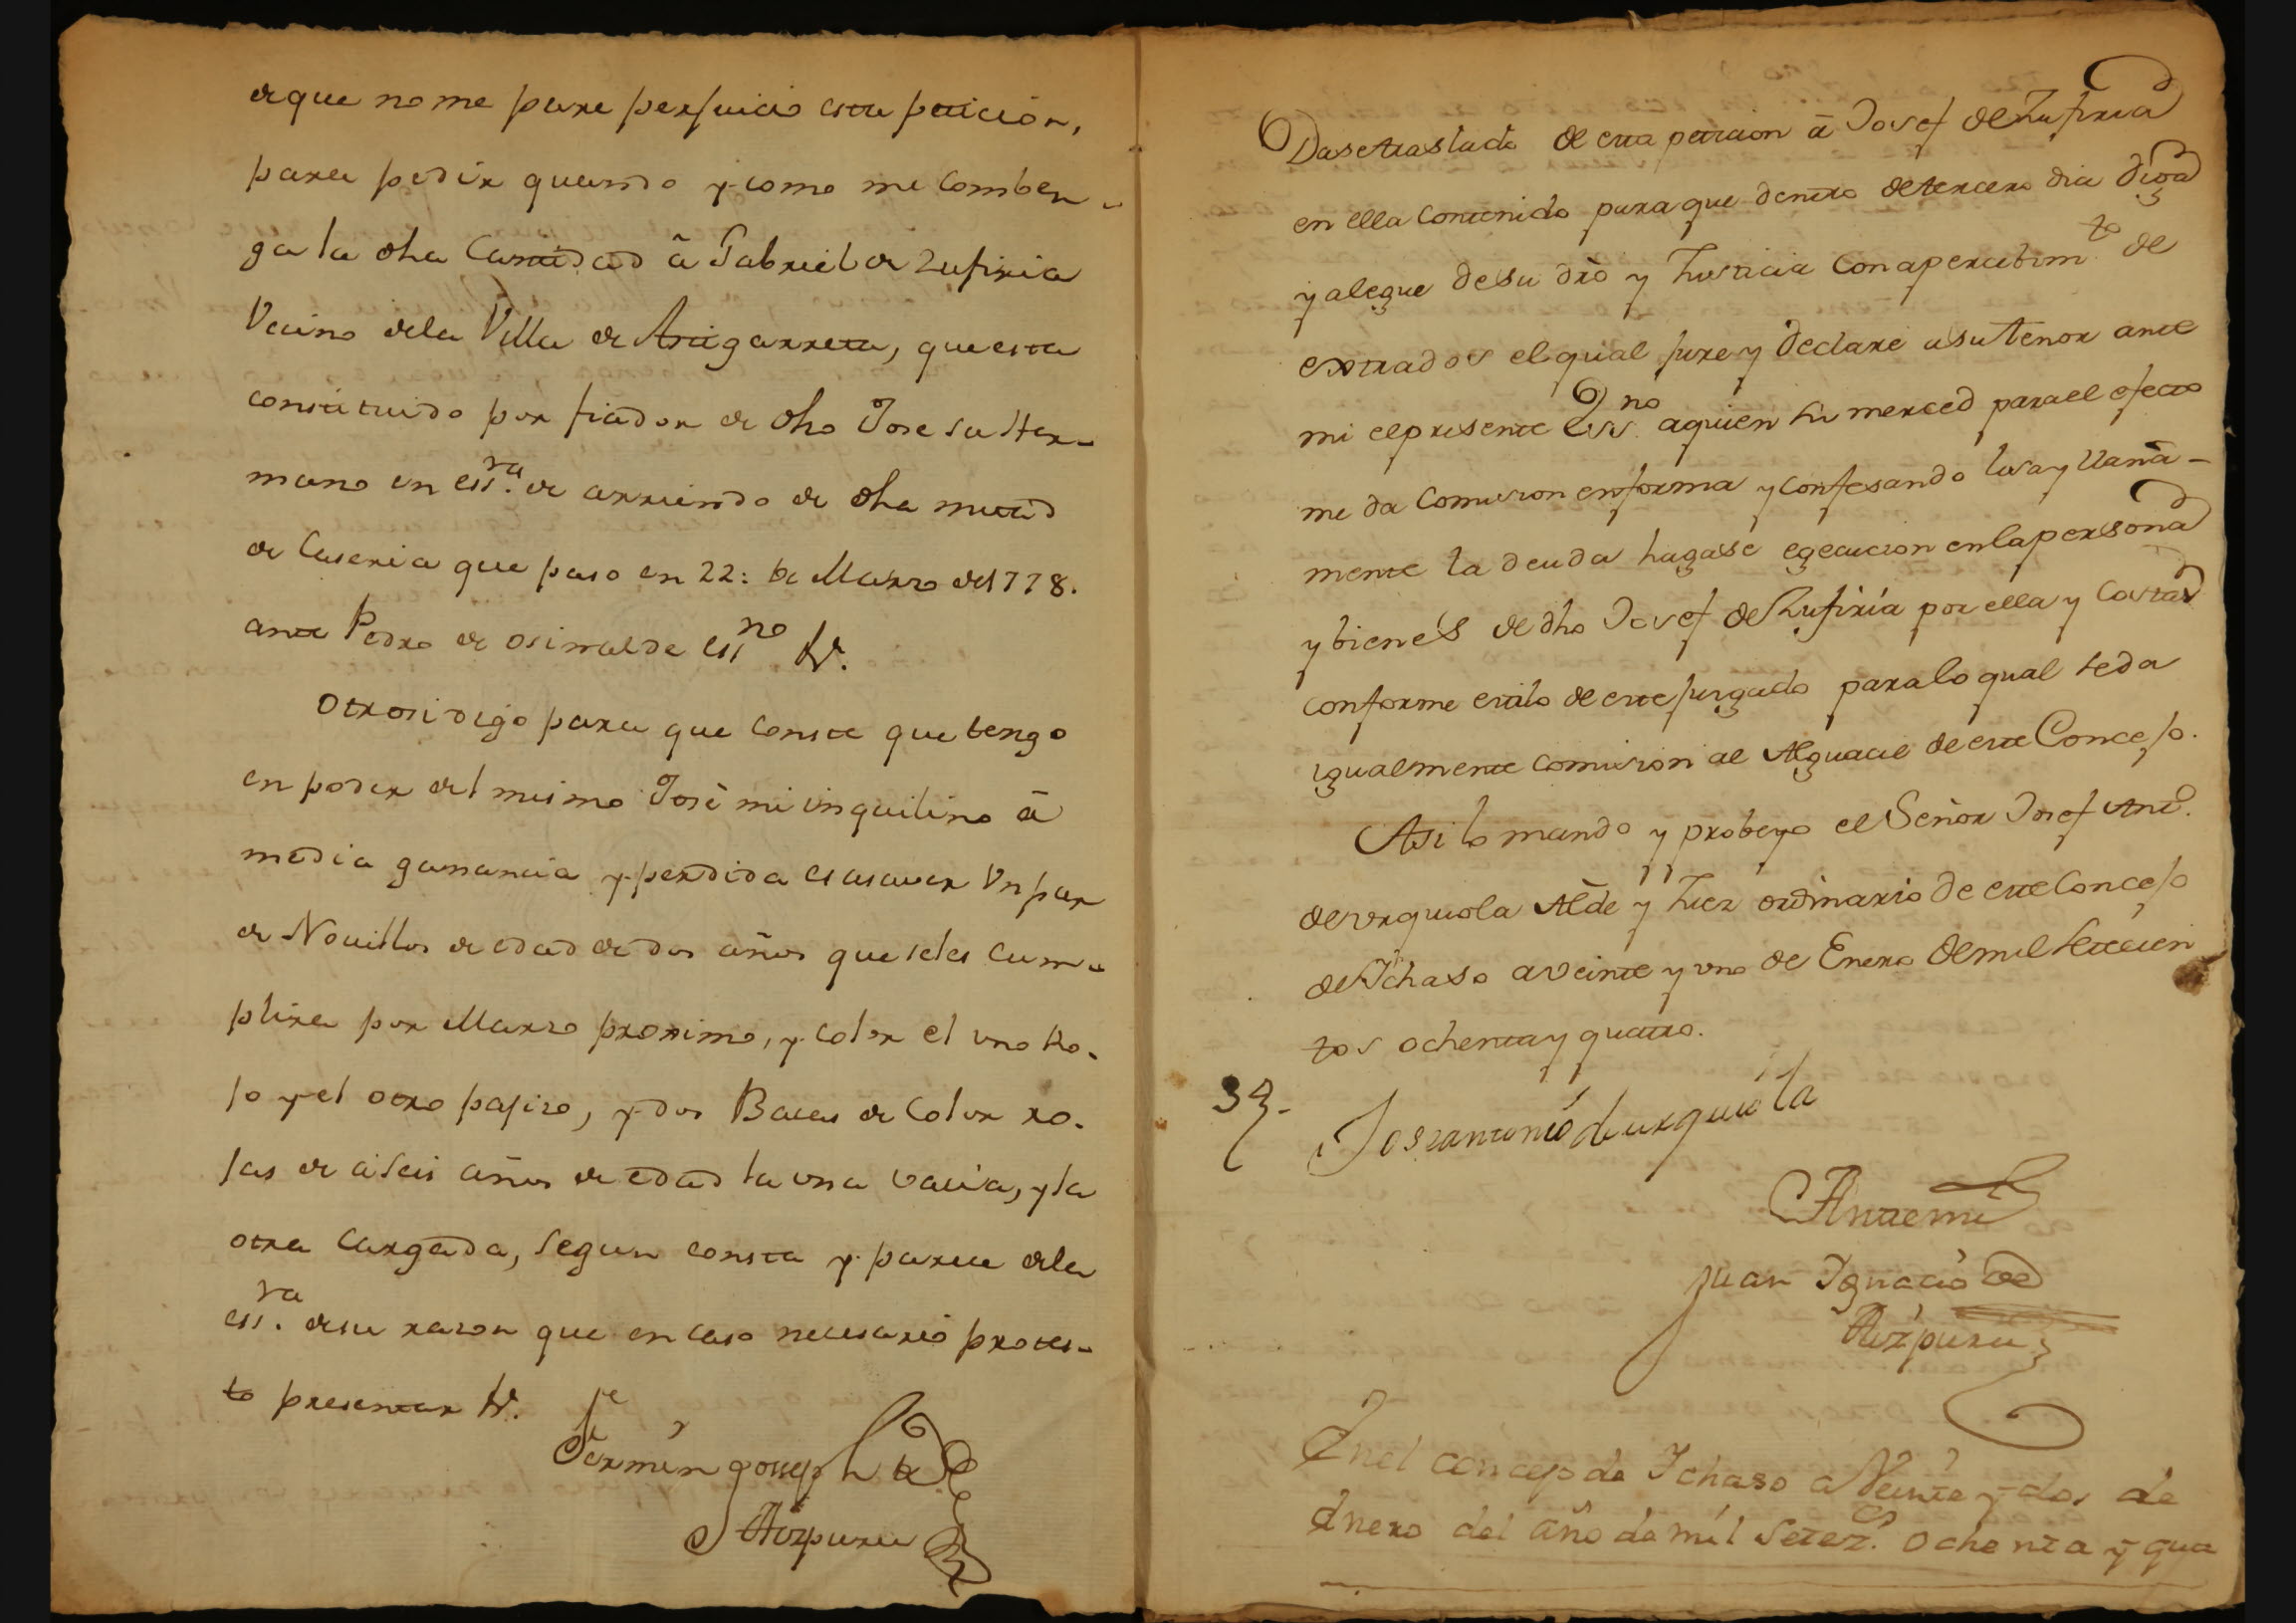 de que no me pare perjuicio esta peticion,
para pedir quando y como me comben-
ga la dha Cantidad â Gabriel de Zufiria
Vecino dela Villa de Astigarreta, que esta
constituido por fiador de dho Jose su Her-
mano en ess.ra de arriendo de dha mitad
de Caseria que paso en 22: de Marzo de 1778.
ante Pedro de Osinalde essno &.
Otrosi digo para que conste que tengo
en poder del mismo José mi inquilino â
media ganancia y perdida es asaver Un par
de Novillos de edad de dos años que seles cum-
plira por Marzo proximo, y color el uno Ro-
jo y el otro pajizo, y dos Bacas de Color ro-
jas de a seis años de edad la una vacia, y la
otra cargada, segun consta y parece dela
ess.ra de su razon que en caso necesario protes-
to presentar &.
Fermin Joseph de
Aizpuru
Dase traslado de esta peticion â Josef de Zufiria
en ella Contenido para que dentro de tercero dia diga
y alegue de su dro y Justicia con apercebim.to de
extrados el qual jure y declare a su tenor ante
mi el presente Essno aquien su merced para el efecto
me da Comision en forma y confesando lisa y llana-
mente la deuda hagase egecucion en la persona
y bienes de dho Josef de Zufiria por ella y Costas
conforme estilo de este juzgado para lo qual se da
igualmente comision al Alguacil de este Concejo.
Asi lo mando y probeyo el Señor Josef Anto.
de Urquiola Alde y Juez ordinario de este Concejo
de Ichaso a veinte y uno de Enero de mil setecien
tos ochenta y quatro.
Jose antonio de urquiola
Ante mi
Juan Ignacio de
Aizpuru
En el concejo de Ichaso a Veinte y dos de
Enero del año de mil Setez.os ochenta y qua